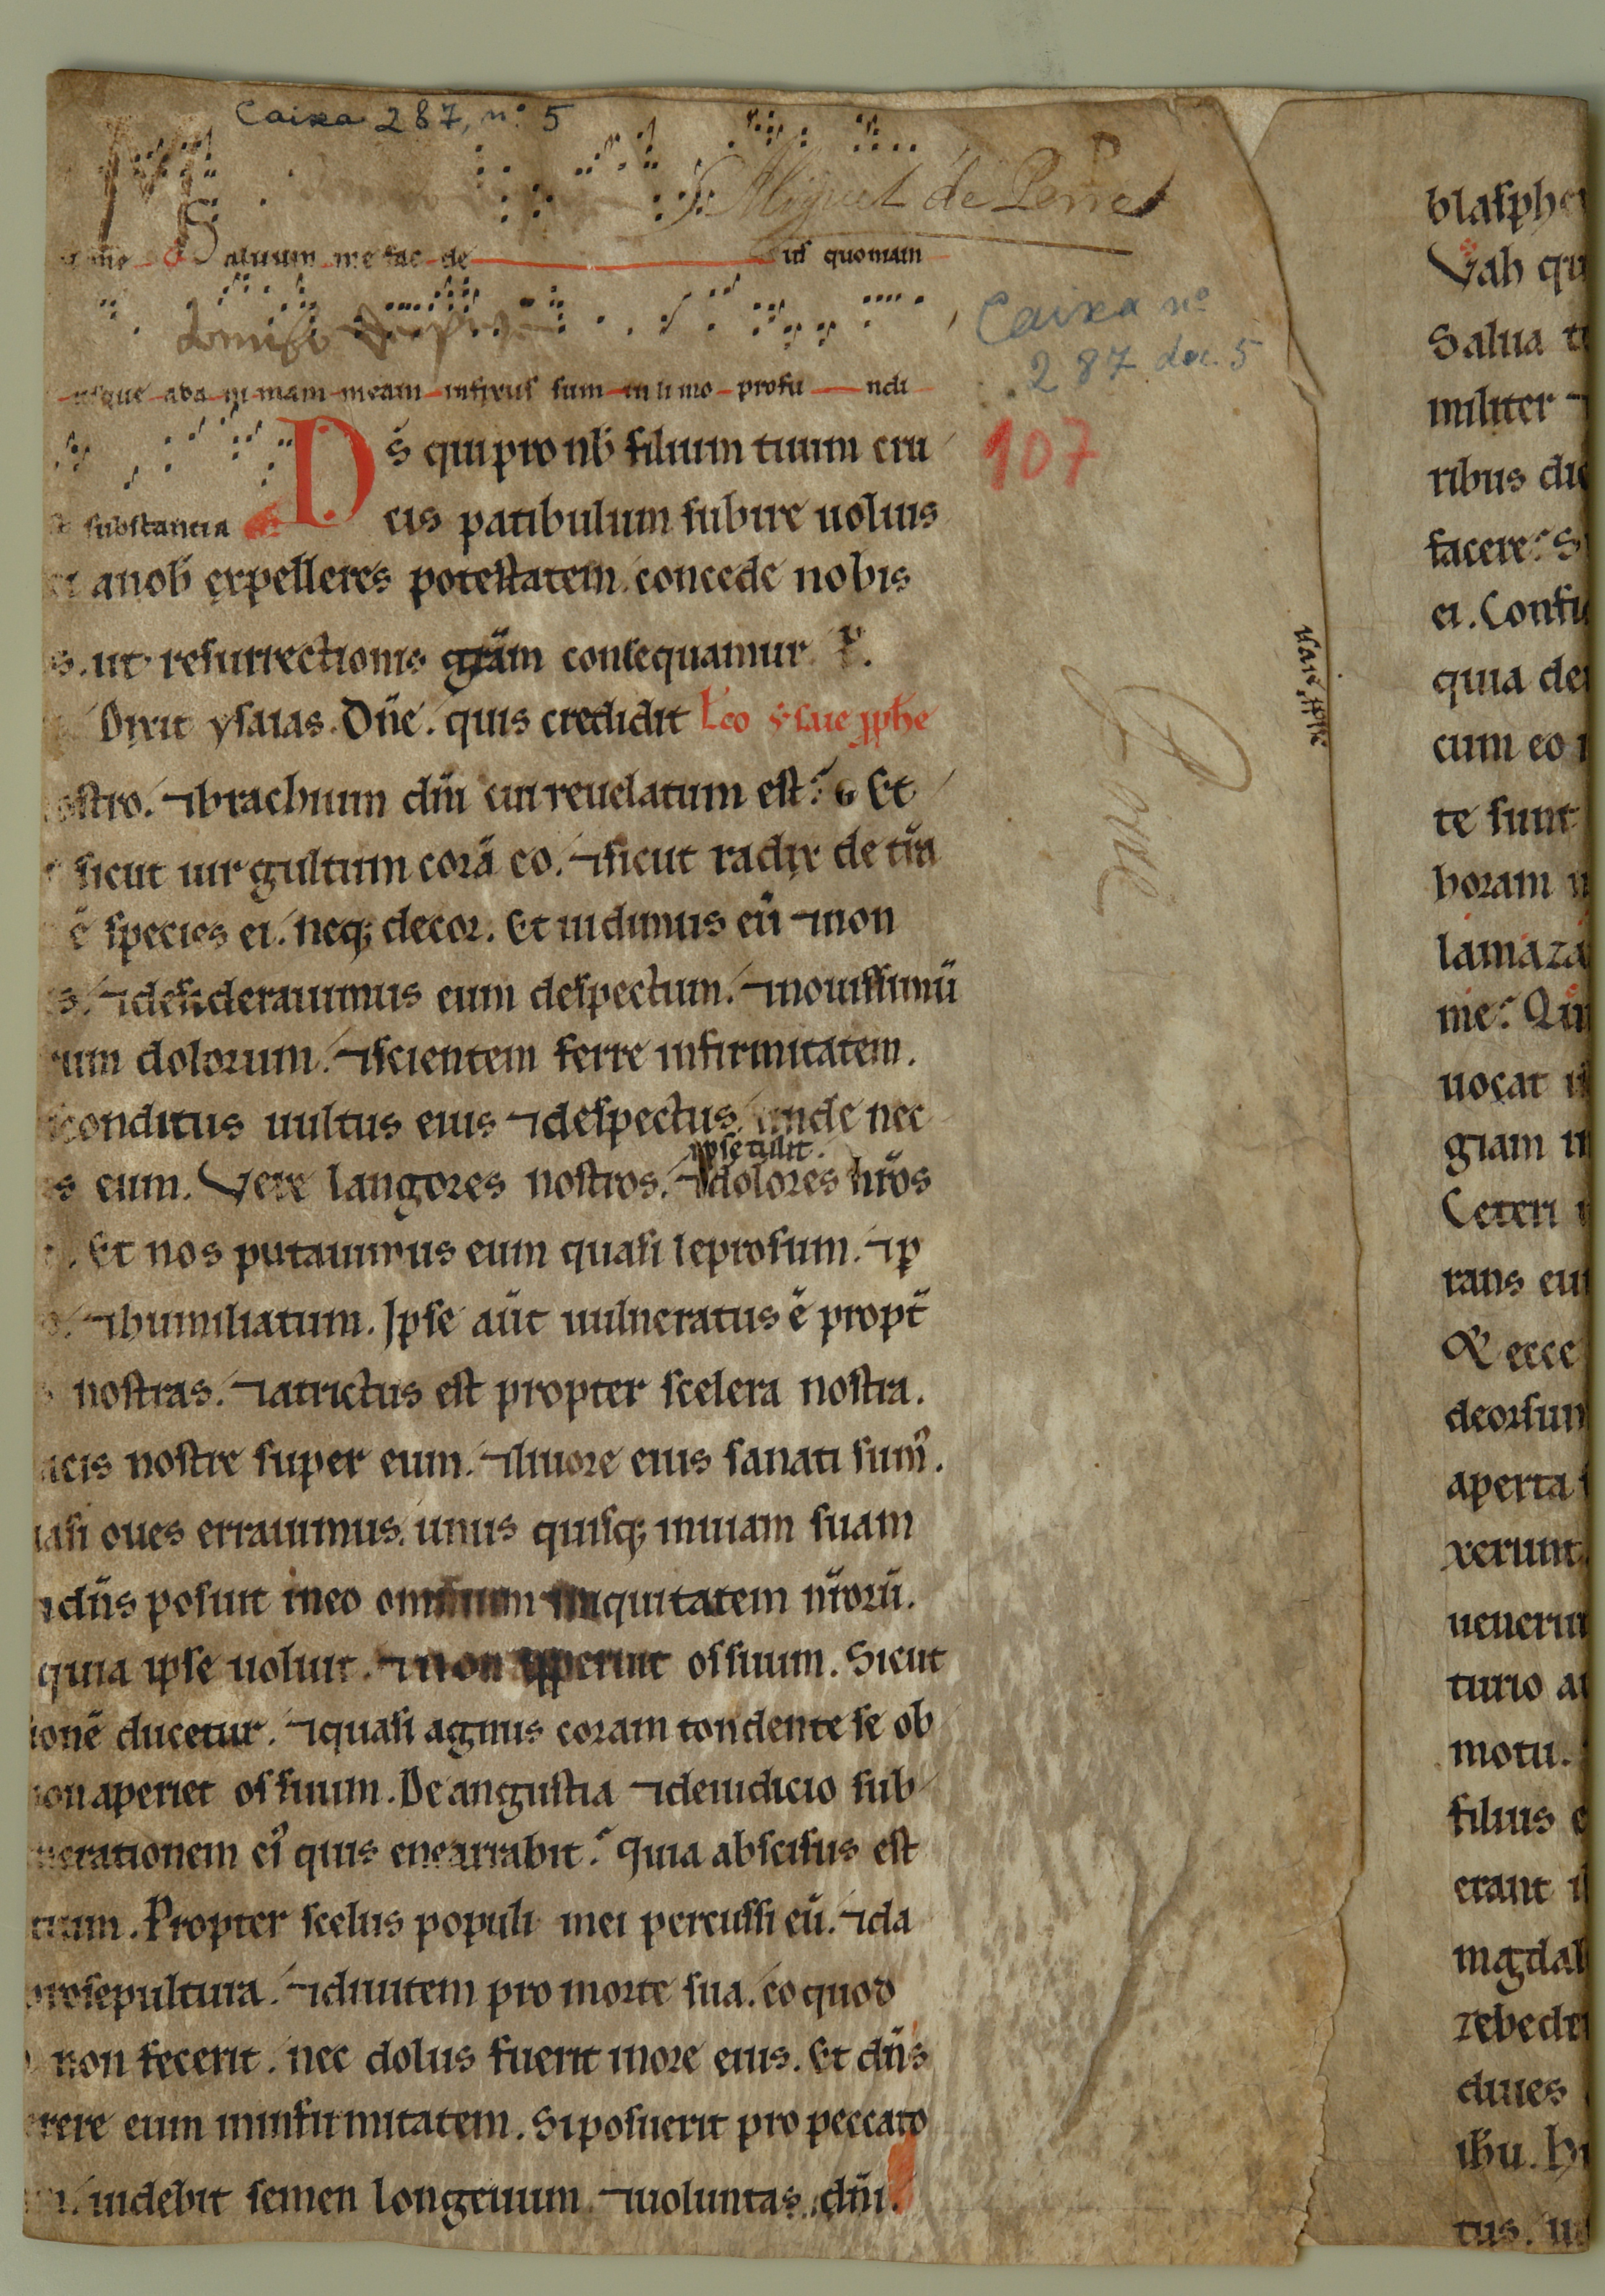 Caixa 287, nº 5
S. Miguel de Pena
Saluum me fac de us quoniam
usque ad a ni mam meam infixus sum in li mo profu ndi
Caixa nº
287 doc. 5
107
Ds̄ qui pro nob̄ filium tuum cru
substantia cis patibulum subire uoluis
a nob̄ expelleres potestatem. concede nobis
s. ut resurrectionis grām consequamur. P.
Dixit ysaias. Dn̄e. quis credidit Lc̄o ysaie pphe
ostro. ⁊ brachium dn̄i cui reuelatum est? Et
sicut uirgultum corā eo. ⁊ sicut radix de tr̄a
ē species ei. neq; decor. Et uidimus eū ⁊ non
s. ⁊ desiderauimus eum despectum. ⁊ nouissimū
rum dolorum. ⁊ scientem ferre infirmitatem.
sconditus uultus eius ⁊ despectus. unde nec
ipse tulit.
s eum. Vere langores nostros. ⁊ dolores nr̄os
. Et nos putauimus eum quasi leprosum. ⁊ p
o. ⁊ humiliatum. Ipse aūt uulneratus ē propt̄
s nostras. ⁊ atrictus est propter scelera nostra.
acis nostre super eum. ⁊ liuore eius sanati sum᾿.
uasi oues errauimus. unus quisq; in uiam suam
⁊ dn̄s posuit in eo omnium iniquitatem nr̄orū.
quia ipse uoluit. ⁊ non apperuit os suum. Sicut
ionē ducetur. ⁊ quasi agnus coram tondente se ob
non aperiet os suum. De angustia ⁊ de iudicio sub
nerationem ei᾿ quis enearrabit? Quia abscisus est
tium. Propter scelus populi mei percussi eū. ⁊ da
pro sepultura. ⁊ diuitem pro morte sua. eo quod
non fecerit. nec dolus fuerit in ore eius. Et dn̄s
rere eum in infirmitatem. Si posuerit pro peccato
. uidebit semen longeuum. ⁊ uoluntas dn̄i.
blasphe
Vah qu
Salua t
militer ⁊
ribus dic
facere? S
ei. Confi
quia de
cum eo
te sunt
horam n
lamaza
me? Qui
uocat i
giam i
Ceteri
rans eu
Et ecce
deorsum
aperta
xerunt.
uenerun
turio a
motu.
filius e
erant i
magdal
zebedei
diues
ihu. h
tus. u